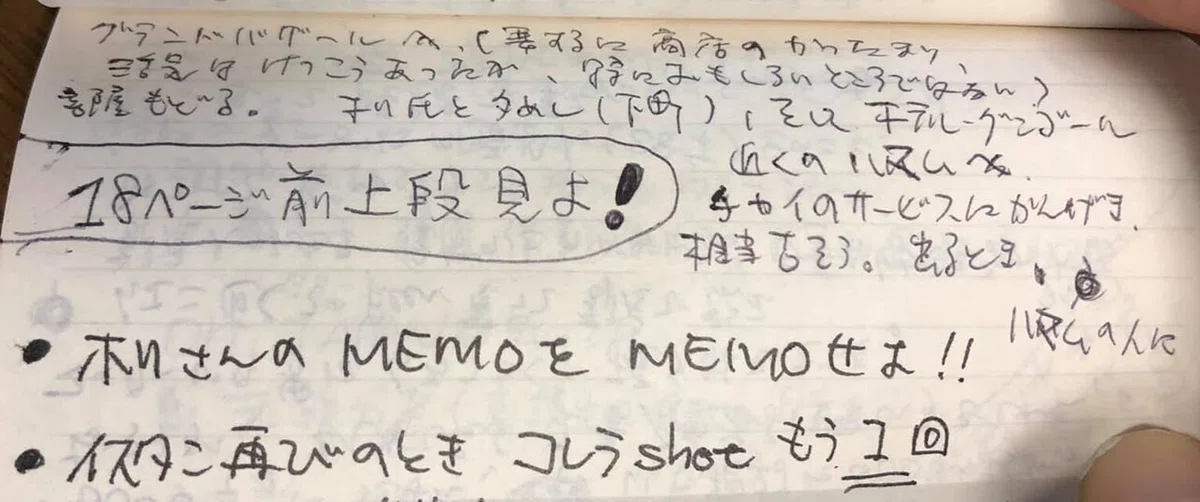 グランドバザールへ、(要するに商店のかたまり、
活気はけっこうあったが、特におもしろいところではない)
部屋もどる。 ホリ氏と夕めし(下町)、その ホテル・グンゴール
近くのハマムへ。
18ページ前上段見よ!
チャイのサービスにかんげき。
相当古そう。出るとき、
ハマムの人に
• ホリさんの MEMOを MEMOせよ!!
• イスタン再びのとき コレラshot もう1回